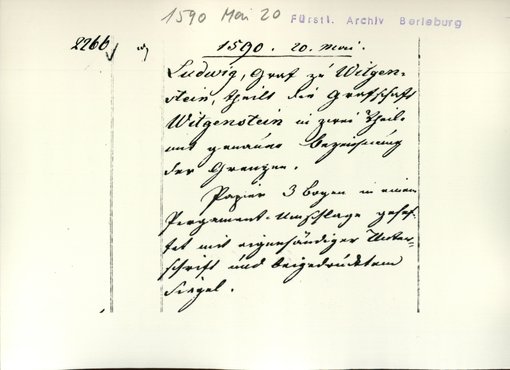 1590 Mai 20 Fürstl. Archiv Berleburg
2266
1590. 20. Mai.
Ludwig, Graf zu Witgen-
stein, theilt die Grafschaft
Witgenstein in zwei Theile
und genauer Bezeichnung
der Grenzen.
Papier 3 Bogen in einem
Pergament-Umschlage gehef-
tet mit eigenhändiger Unter-
schrift und beigedrücktem
Siegel.